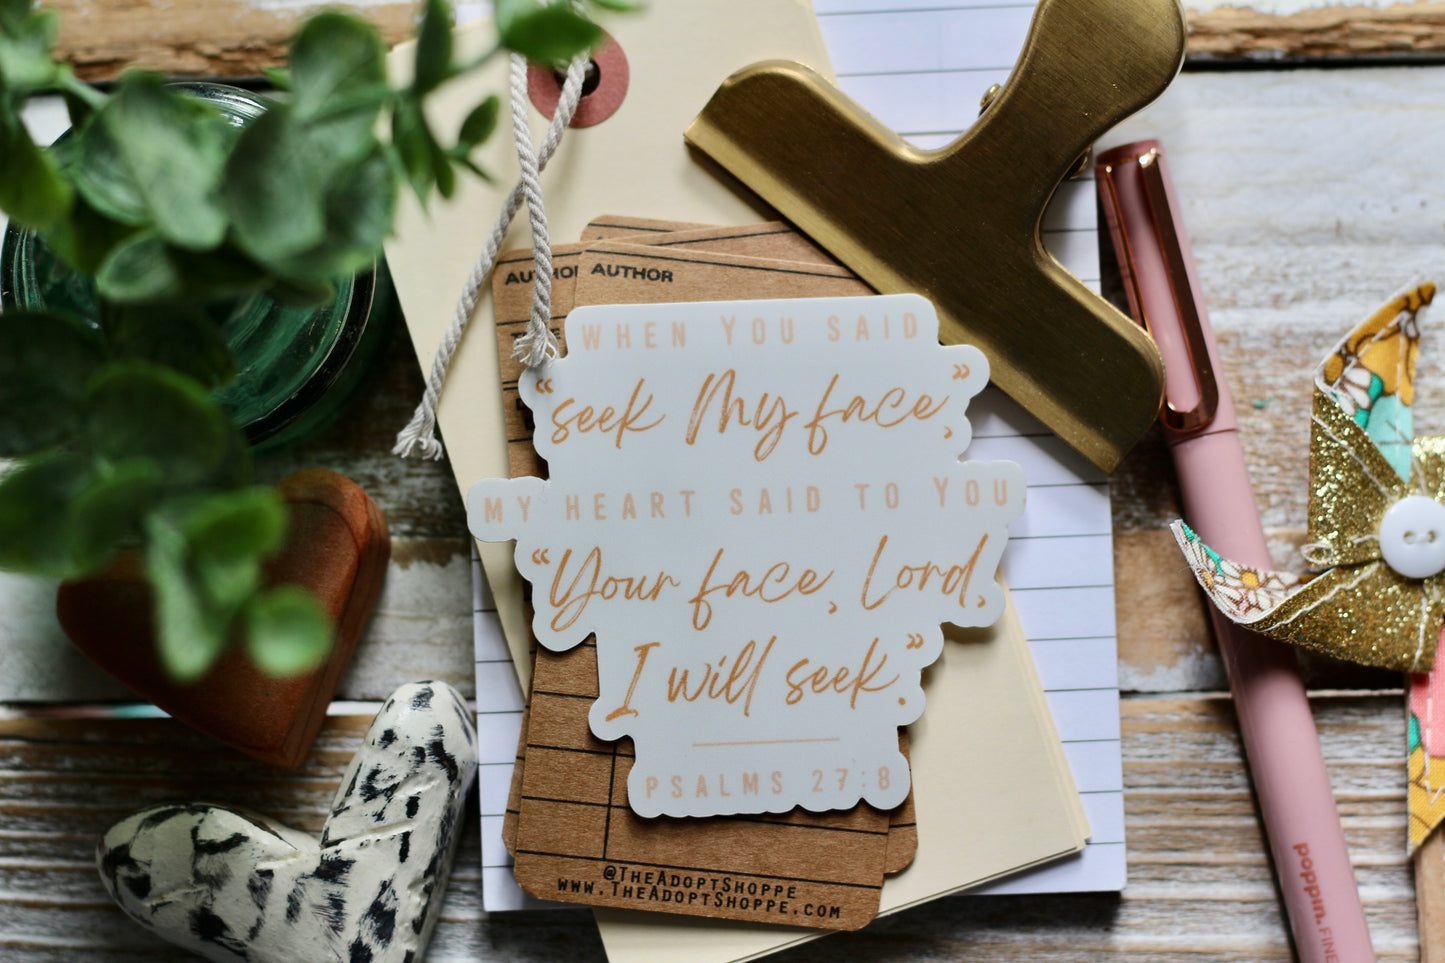 AUTHOR
AUTHOR
WHEN YOU SAID
“seek My face,”
MY HEART SAID TO YOU
“Your face, Lord,
I will seek.”
PSALMS 27:8
@THEADOPTSHOPPE
WWW.THEADOPTSHOPPE.COM
poppin.FINE